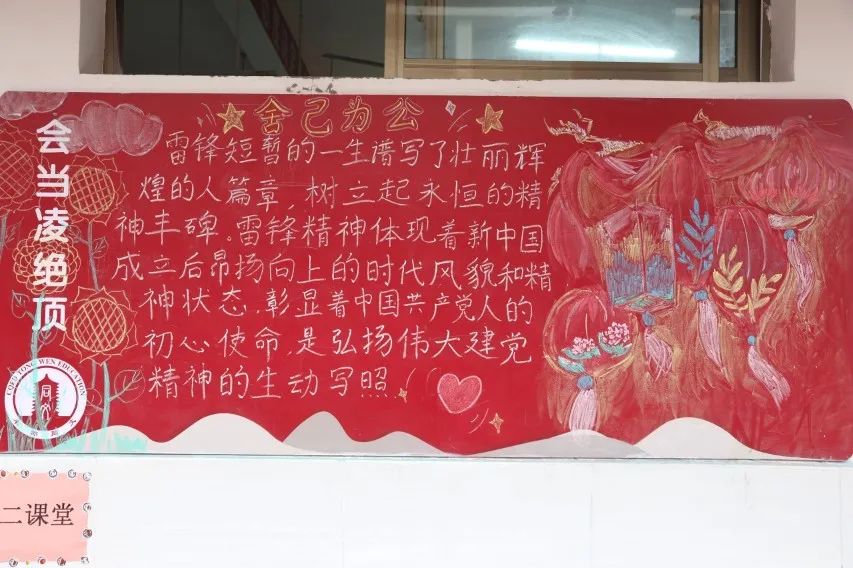 舍己为公
雷锋短暂的一生谱写了壮丽辉
煌的人篇章,树立起永恒的精
神丰碑。雷锋精神体现着新中国
成立后昂扬向上的时代风貌和精
神状态,彰显着中国共产党人的
初心使命,是弘扬伟大建党
精神的生动写照!
会当凌绝顶
COED TONG WEN EDUCATION
二课堂